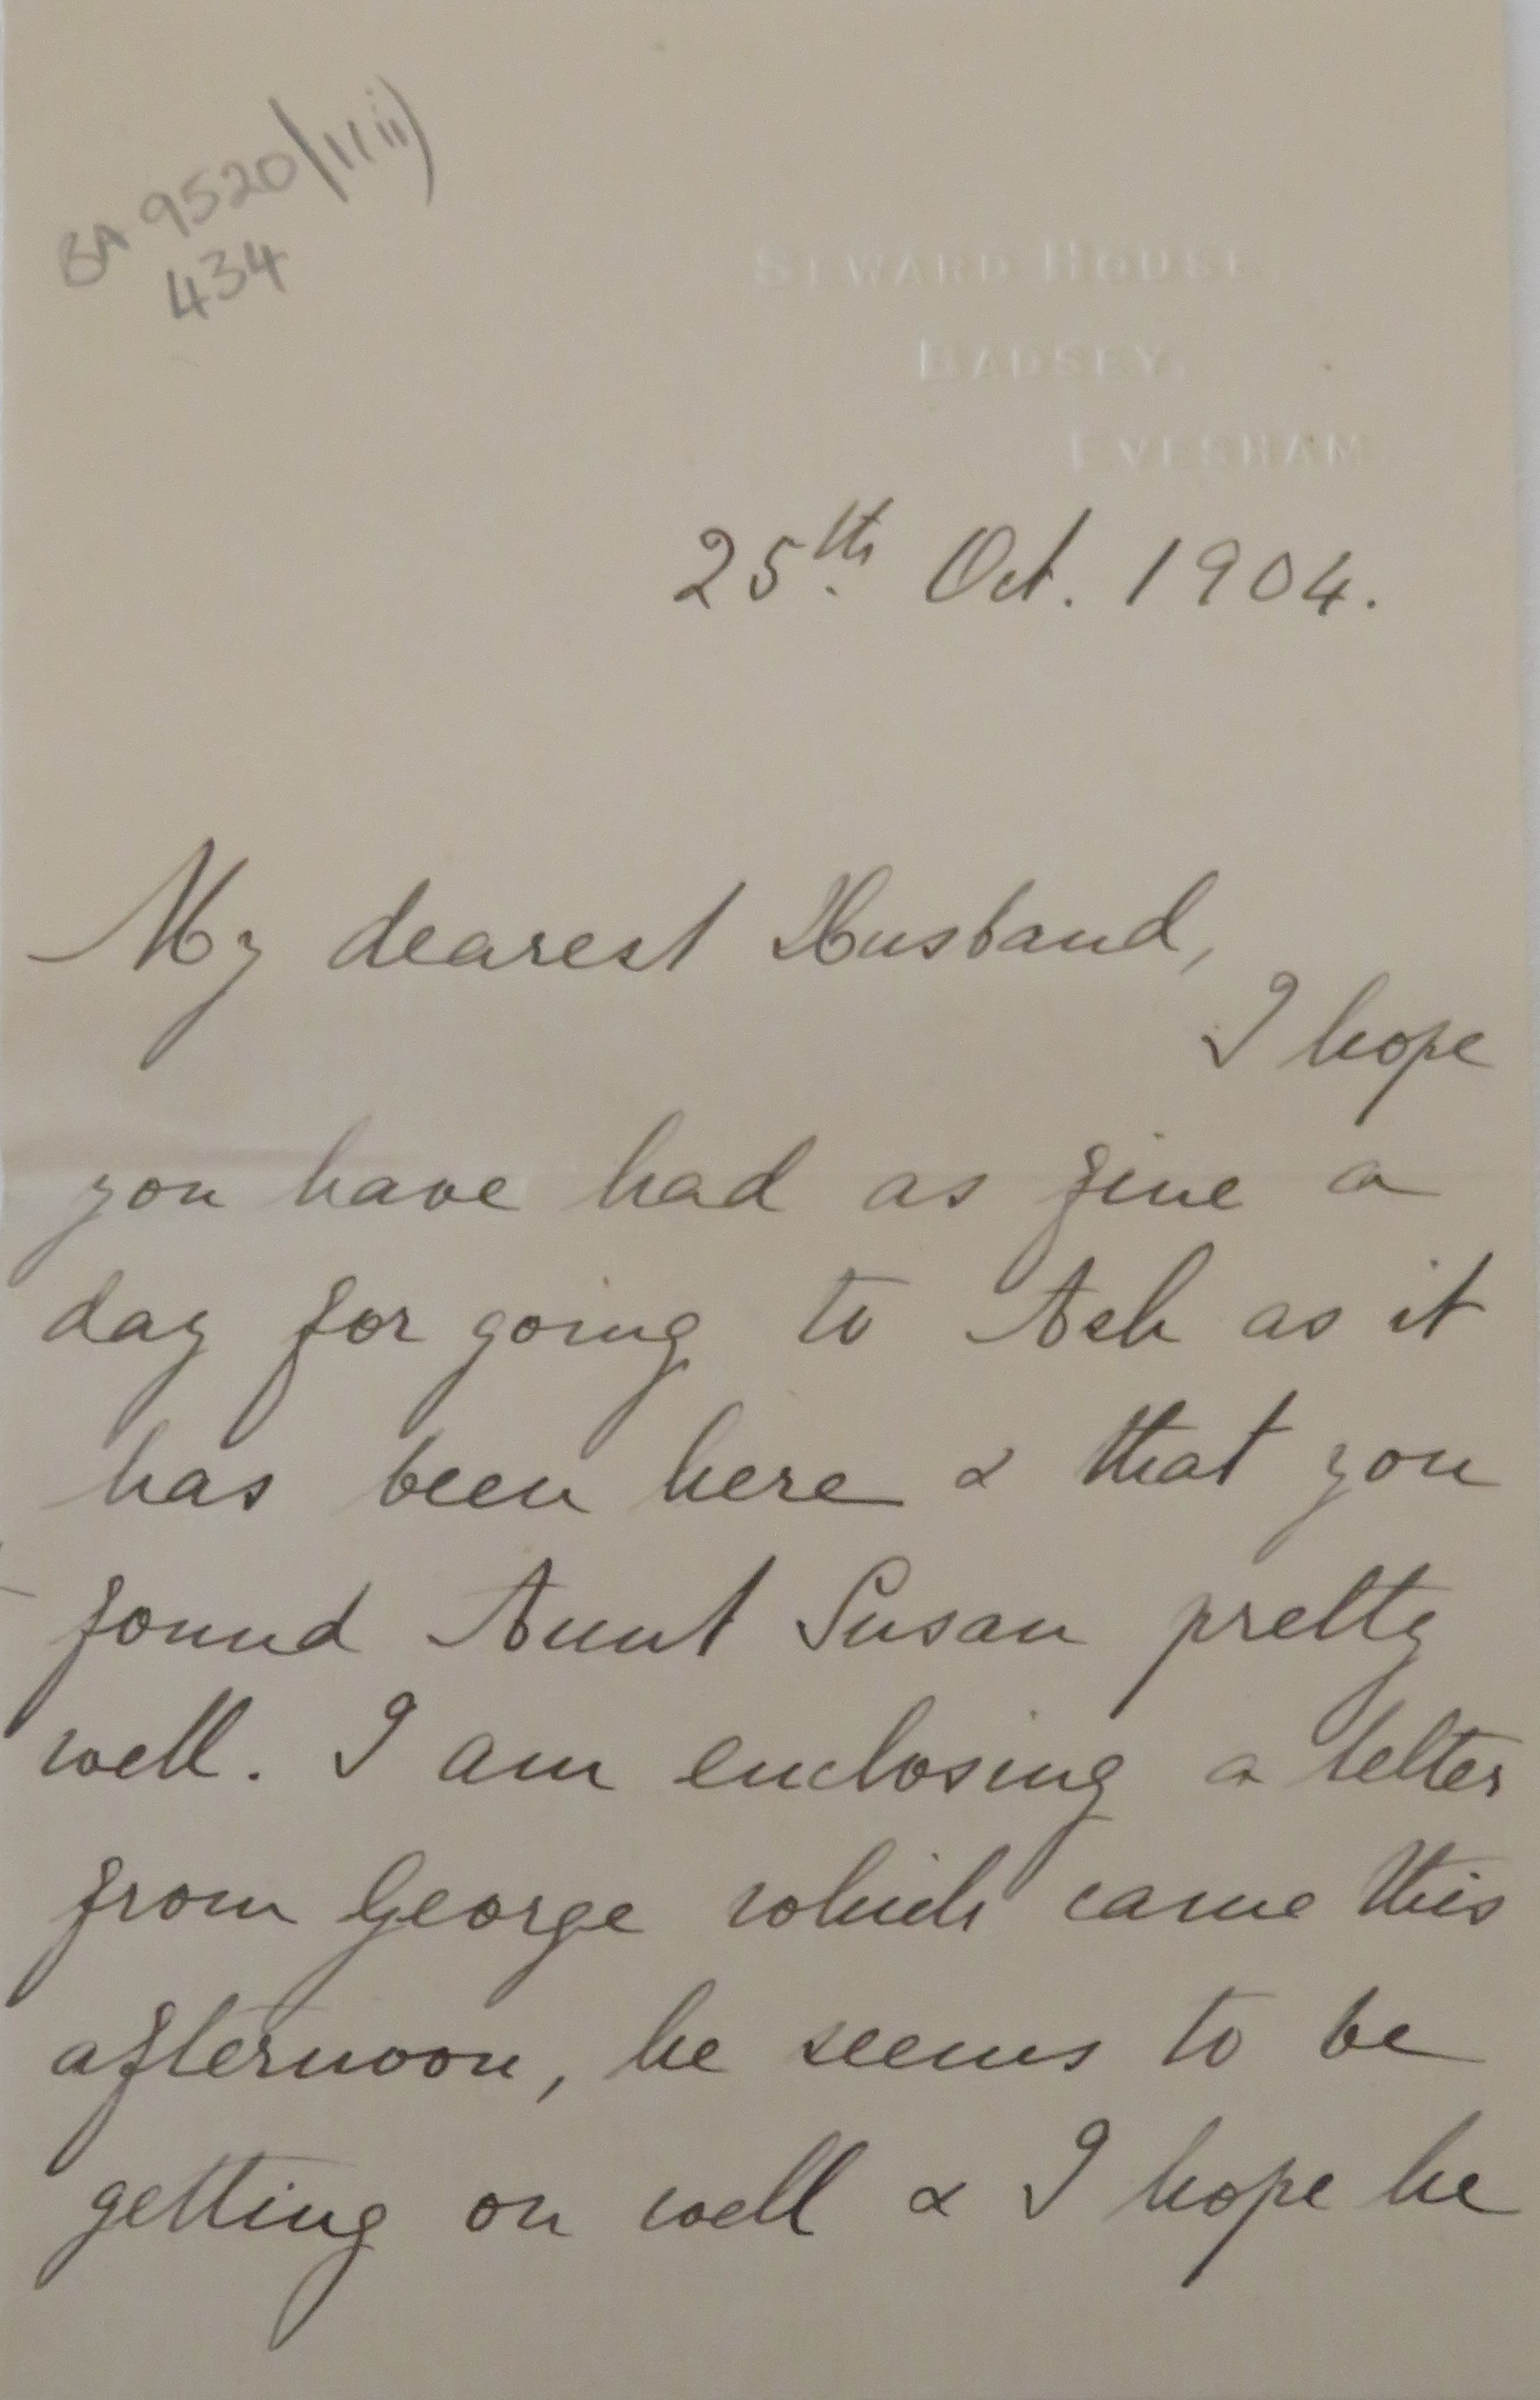 BA 9520/11(ii)
434
SEWARD HOUSE,
BADSEY,
EVESHAM
25th. Oct. 1904.
My dearest Husband,
I hope
you have had as fine a
day for going to Ash as it
has been here & that you
found Aunt Susan pretty
well. I am enclosing a letter
from George which came this
afternoon, he seems to be
getting on well & I hope he